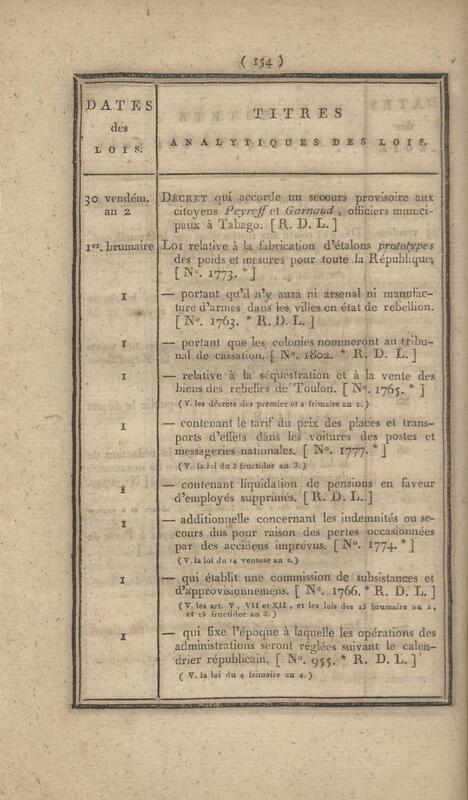 ( 154 )
DATES
des
LOIS.
TITRES
ANALYTIQUES DES LOIS.
30 vendém.
an 2
DÉCRET qui accorde un secours provisoire aux
citoyens Peyreff et Garnaud, officiers munici-
paux à Tabago. [ R. D. L. ]
1er. brumaire
LOI relative à la fabrication d'étalons prototypes
des poids et mesures pour toute la République,
[ No. 1773. * ]
1
— portant qu'il n'y aura ni arsenal ni manufac-
ture d'armes dans les villes en état de rebellion.
[ No. 1763. * R. D. L. ]
1
— portant que les colonies nommeront au tribu-
nal de cassation. [ No. 1802. * R. D. L. ]
1
— relative à la séquestration et à la vente des
biens des rebelles de Toulon. [ No. 1765. * ]
( V. les décrets des premier et 2 frimaire an 2. )
1
— contenant le tarif du prix des places et trans-
ports d'effets dans les voitures des postes et
messageries nationales. [ No. 1777. * ]
( V. la loi du 3 fructidor an 3. )
1
— contenant liquidation de pensions en faveur
d'employés supprimés. [ R. D. L. ]
1
— additionnelle concernant les indemnités ou se-
cours dus pour raison des pertes occasionnées
par des accidens imprévus. [ No. 1774. * ]
( V. la loi du 14 ventose an 2. )
1
— qui établit une commission de subsistances et
d'approvisionnemens. [ No. 1766. * R. D. L. ]
( V. les art. V, VII et XII, et les lois des 25 brumaire an 2,
et 15 fructidor an 3. )
1
— qui fixe l'époque à laquelle les opérations des
administrations seront réglées suivant le calen-
drier républicain. [ No. 955. * R. D. L. ]
( V. la loi du 4 frimaire an 2. )